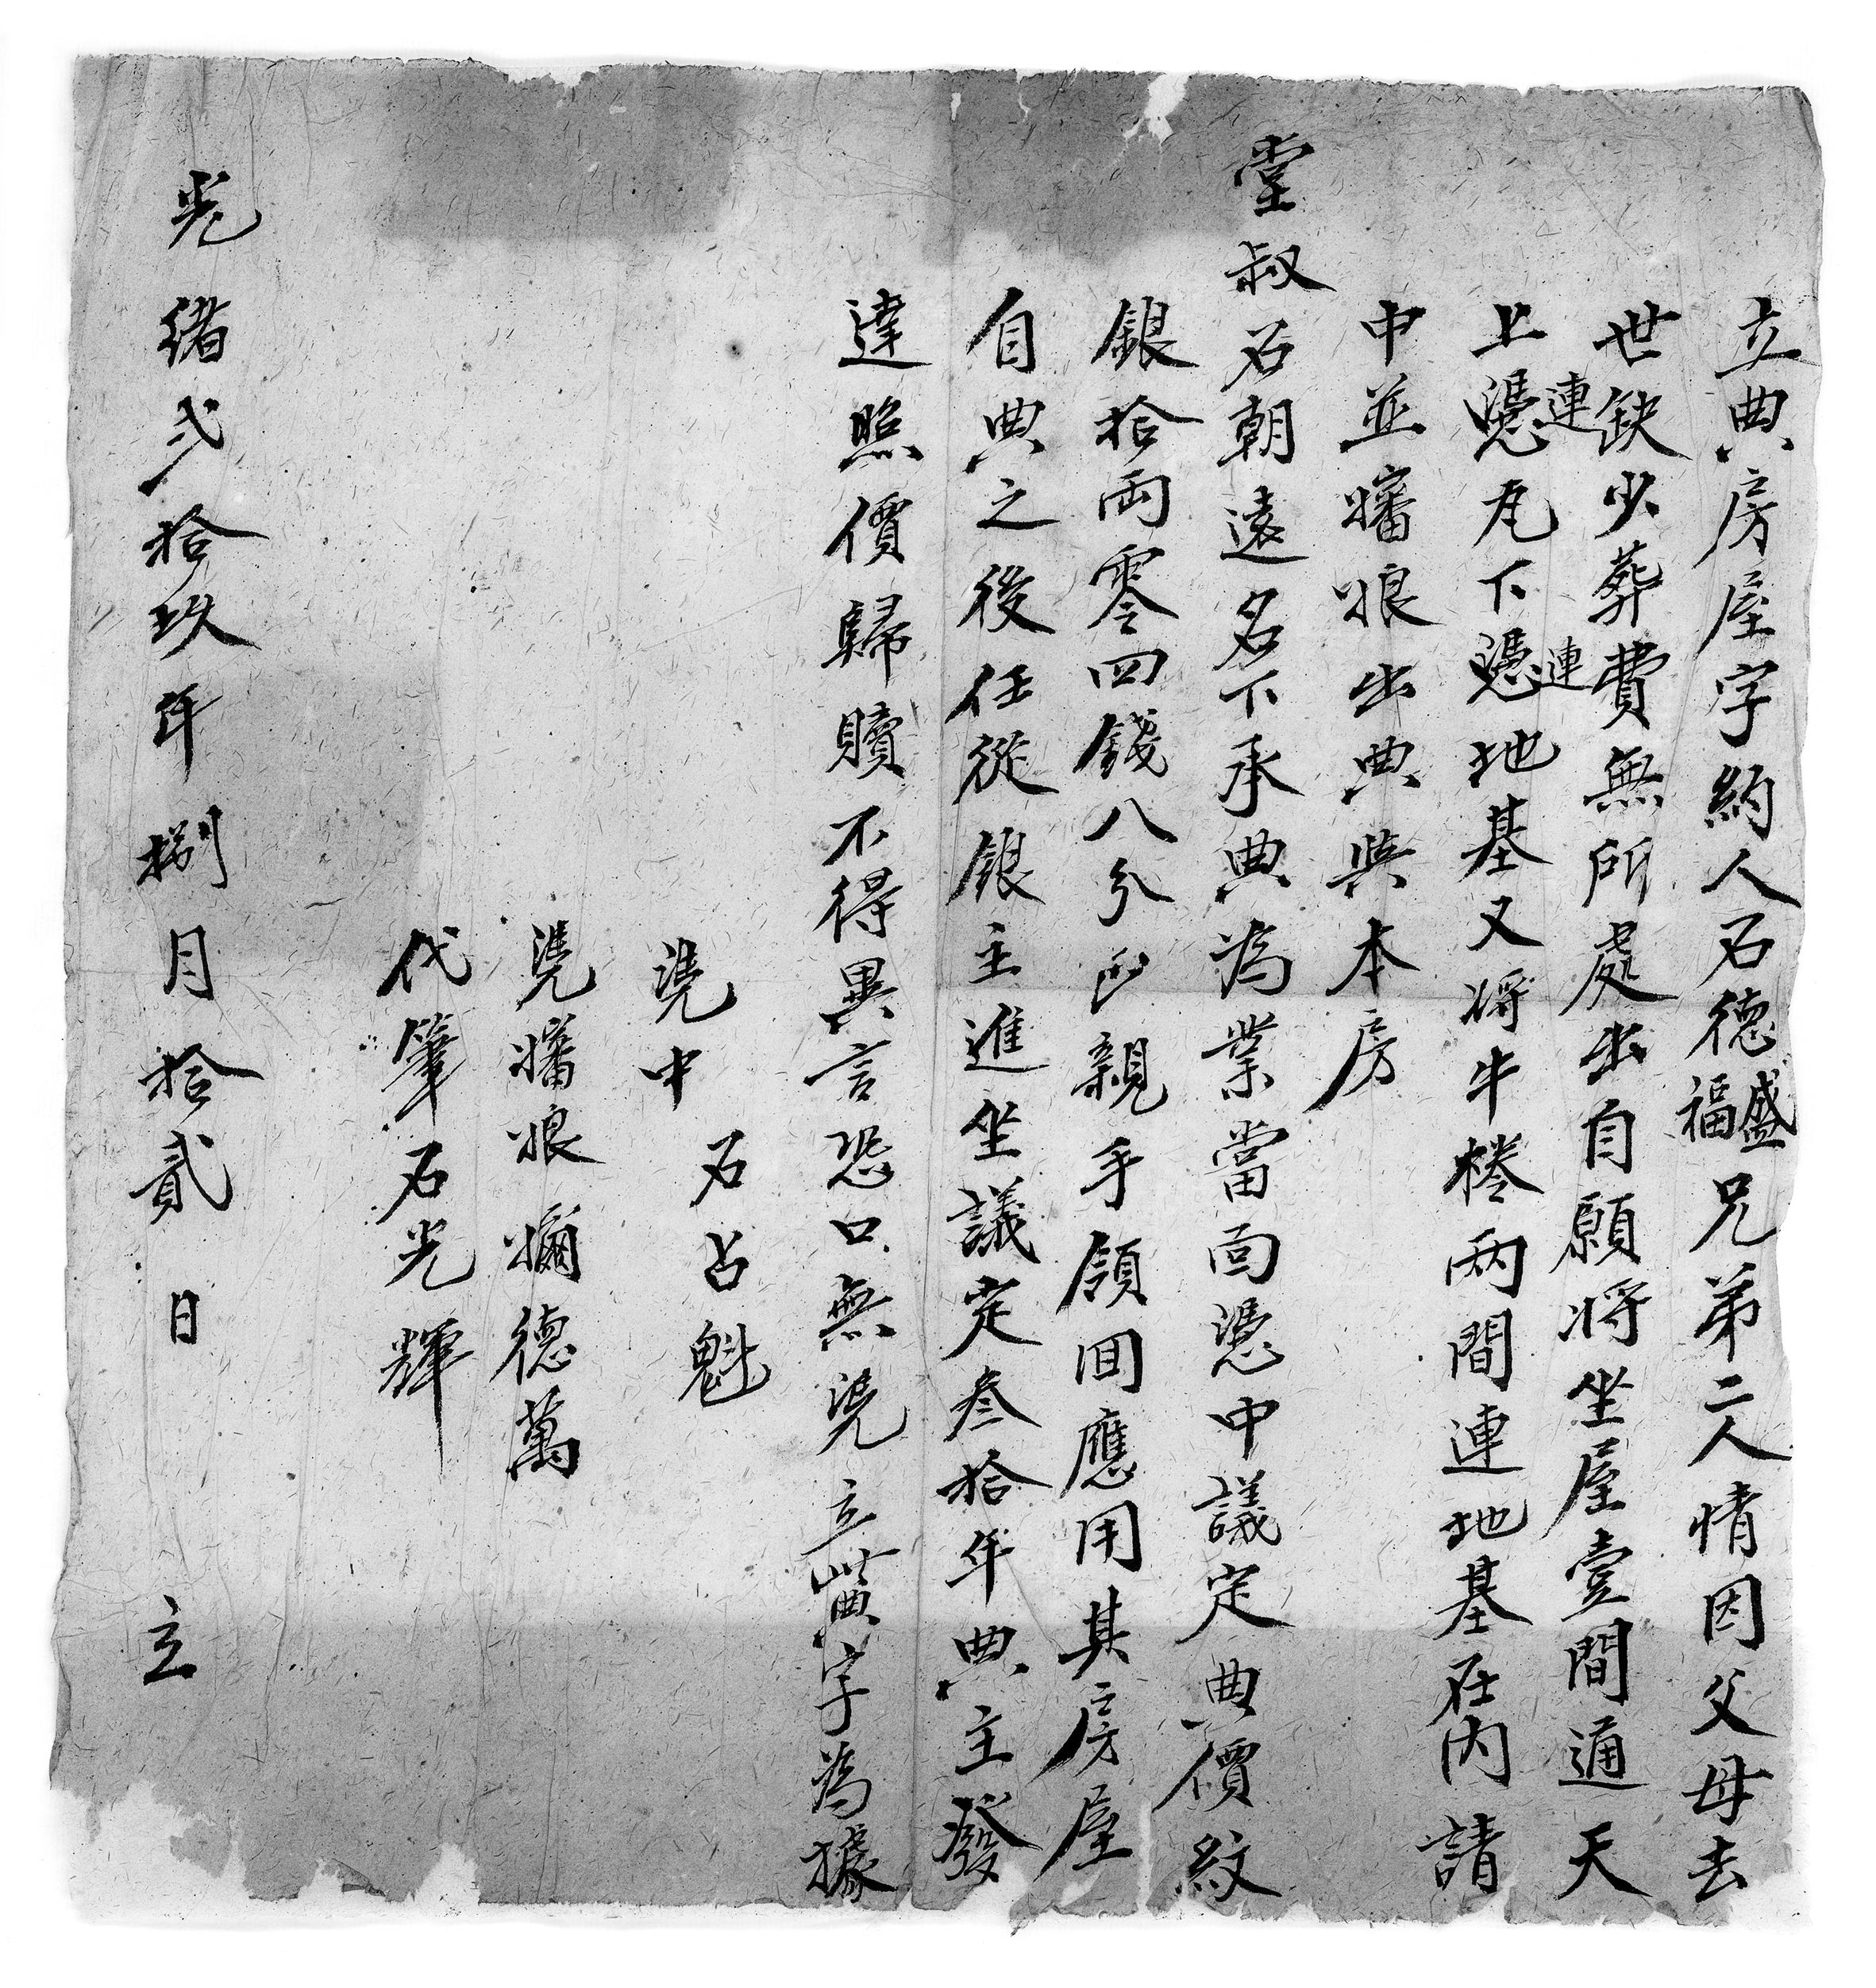 立典房屋字約人石德盛福兄弟二人情因父母去
世缺少葬費無所處出自願將坐屋壹間通天
上憑連瓦下憑連地基又將牛棬兩間連地基在內請
中並孀娘出典與本房
堂叔石朝遠名下承典為業當面憑中議定典價紋
銀拾兩零四錢八分即親手領回應用其房屋
自典之後任從銀主進坐議定叁拾年典主發
達照價歸贖不得異言恐口無凴立此典字為據
凴中 石占魁
凴孀娘 德萬
代筆石光輝
光緒弍拾玖年捌月拾貳日 立